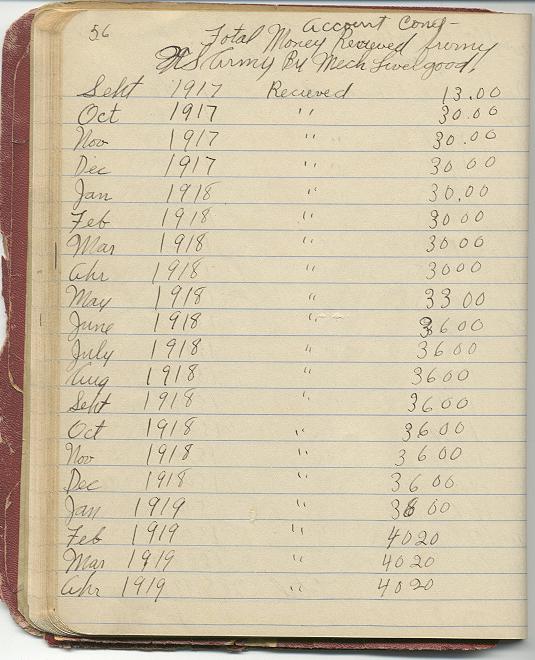 56 Account Cont-
Total Money Recieved from
U S Army By Mech Livelgood.
Sept 1917 Recieved 13.00
Oct 1917 " 30.00
Nov 1917 " 30.00
Dec 1917 " 30 00
Jan 1918 " 30.00
Feb 1918 " 30 00
Mar 1918 " 30 00
Apr 1918 " 30 00
May 1918 " 33 00
June 1918 " 36 00
July 1918 " 36 00
Aug 1918 " 36 00
Sept 1918 " 36 00
Oct 1918 " 36 00
Nov 1918 " 36 00
Dec 1918 " 36 00
Jan 1919 " 36 00
Feb 1919 " 40 20
Mar 1919 " 40 20
Apr 1919 " 40 20